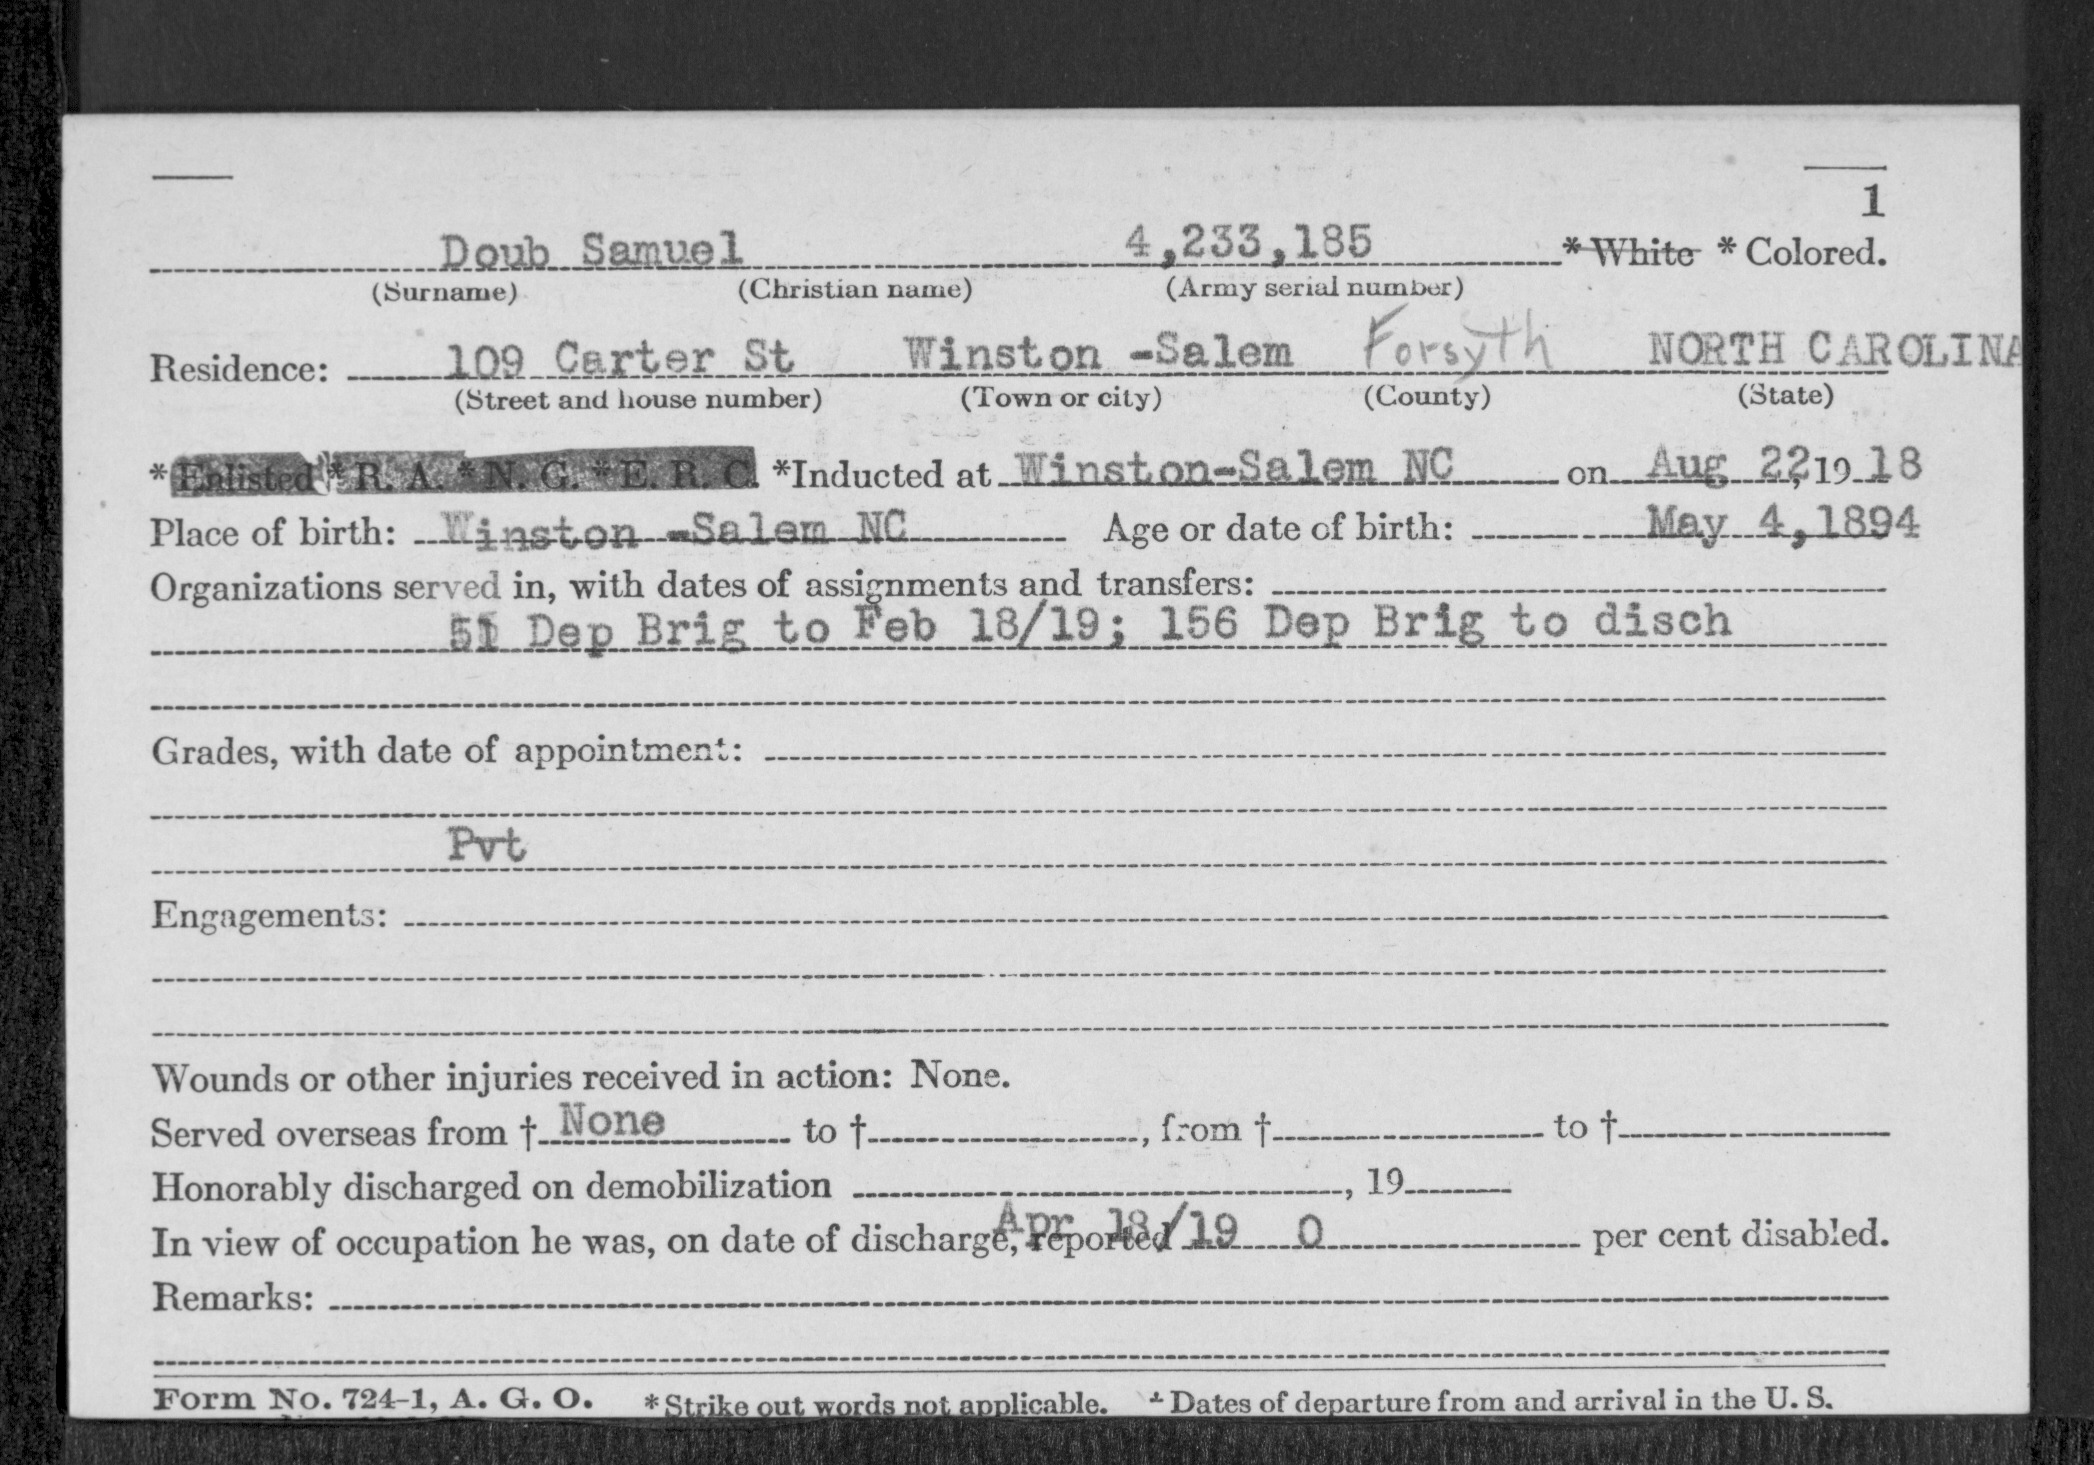 1
Doub Samuel 4,233,185 * White * Colored.
(Surname) (Christian name) (Army serial number)
Residence: 109 Carter St Winston -Salem Forsyth NORTH CAROLINA
(Street and house number) (Town or city) (County) (State)
* Enlisted * R. A. * N. G. * E. R. C. *Inducted at Winston-Salem NC on Aug 22, 19 18
Place of birth: Winston -Salem NC Age or date of birth: May 4, 1894
Organizations served in, with dates of assignments and transfers:
Dep Brig to Feb 18/19; 156 Dep Brig to disch
Grades, with date of appointment:
Pvt
Engagements:
Wounds or other injuries received in action: None.
Served overseas from † None to † , from † to †
Honorably discharged on demobilization , 19
Apr 18/19 0
In view of occupation he was, on date of discharge, reported per cent disabled.
Remarks:
Form No. 724-1, A. G. O. * Strike out words not applicable. † Dates of departure from and arrival in the U. S.